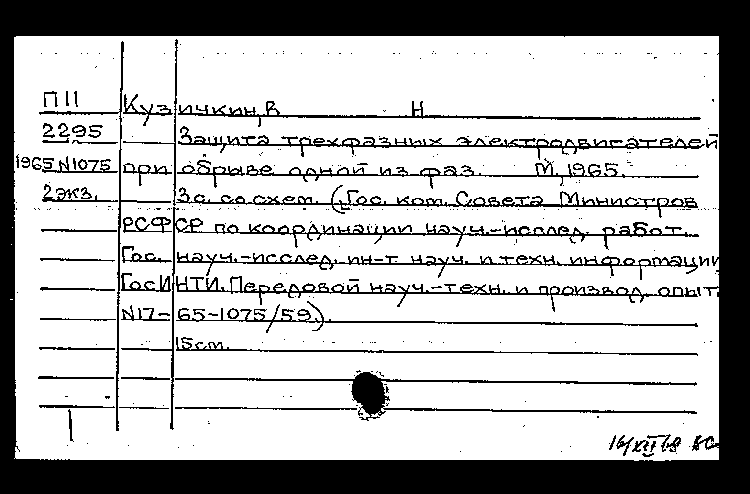 П11 Кузичкин, В Н
2295 Защита трехфазных электродвигателей
1965 N1075 при обрыве одной из фаз. М, 1965.
2экз. 3с. со схем. (Гос. ком. Совета Министров
РСФСР по координации науч.-исслед. работ.
Гос. науч.-исслед. ин-т науч. и техн. информации
ГосИНТИ. Передовой науч.-техн. и производ. опыт.
N17-65-1075/59).
15см.
16/XII 68